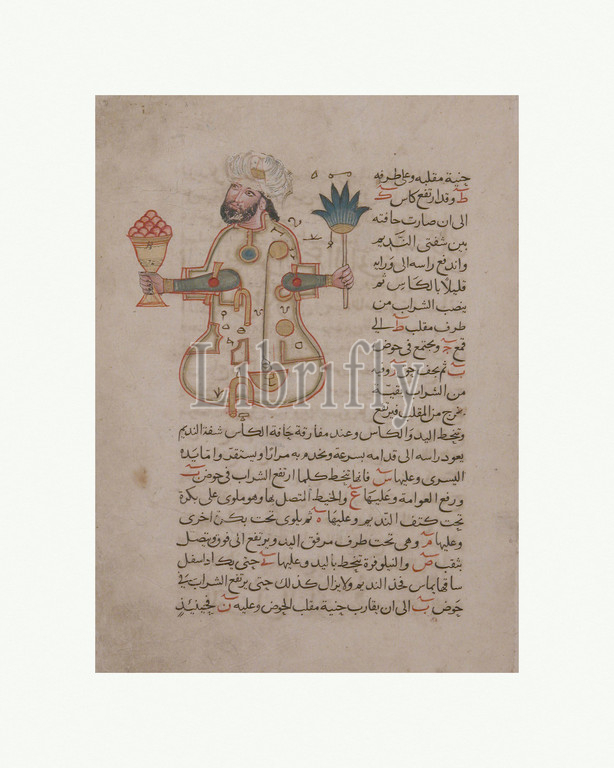 جنبة مقلبه وعلى طرفه
ط وقدار تفع كاس ك
الى ان صارت حافته
بين شفتى النديم
واندفع راسه الى ورايه
قليلا بالكاس ثم
ينصب الشراب من
طرف مقلب ط الى
قمع ج ويجتمع فى حوض
ب ثم يجف حتى
من الشراب
يخرج من المقلب فيرتفع
Librifly
وتنحط اليد والكاس وعند مفارقة حافة الكاس شفة النديم
يعود راسه الى قدامه بسرعة ويخدم به مرارا ويستقر واما يده
اليسرى وعليها س فانها تنحط كلما ارتفع الشراب فى حوض ب
ورفع العوامة وعليها ع والخيط المتصل بها وهو ملوى على بكرة
تحت كتف النديم وعليها ه ثم يلوى تحت بكرة اخرى
وعليها م وهى تحت طرف مرفق اليد ويرتفع الى فوق ويتصل
بثقب ص والنيلوفرة تنحط باليد وعليها ف حتى يكاد اسفل
ساقها يماس فخذ النديم ولا يزال كذلك حتى يرتفع الشراب فى
حوض ب الى ان يقارب جنبة مقلب الحوض وعليه ن فحينيذ